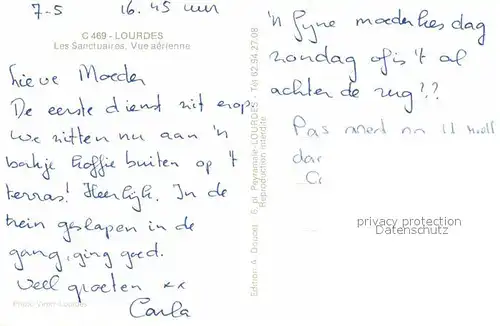 7-5 16.45 uur
C 469 - LOURDES
Les Sanctuaires, Vue aérienne
Lieve Moeder
De eerste dienst zit erop.
We zitten nu aan 'n
bakje koffie buiten op 't
terras! Heerlijk. In de
trein geslapen in de
gang, ging goed.
Veel groeten xx
Carla
Photo: Viron-Lourdes
Edition A. Doucet - 6, Peyramale - LOURDES - Tel 62.94.27.08
Reproduction interdite
'n fijne moederkesdag
zondag of is 't al
achter de rug??
Pas
privacy protection
Datenschutz